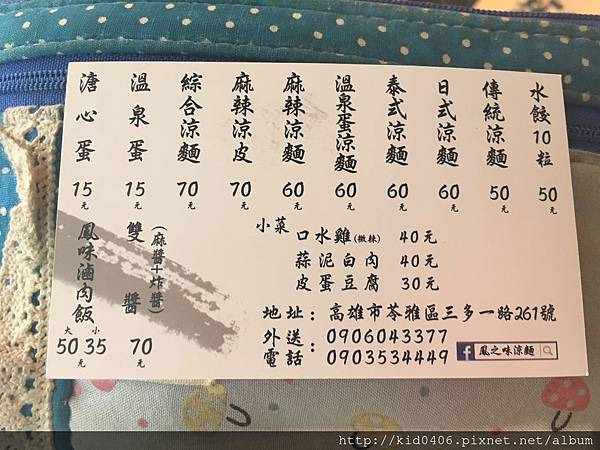 水餃10粒 50元
傳統涼麵 50元
日式涼麵 60元
泰式涼麵 60元
溫泉蛋涼麵 60元
麻辣涼麵 60元
麻辣涼皮 70元
綜合涼麵 70元
溫泉蛋 15元
溏心蛋 15元
小菜
口水雞(微辣) 40元
蒜泥白肉 40元
皮蛋豆腐 30元
雙醬(麻醬+炸醬) 70元
鳳味滷肉飯 大50 小35元
地址：高雄市苓雅區三多一路261號
外送電話：0906043377
0903534449
f 鳳之味涼麵
http://kid0406.pixnet.net/album